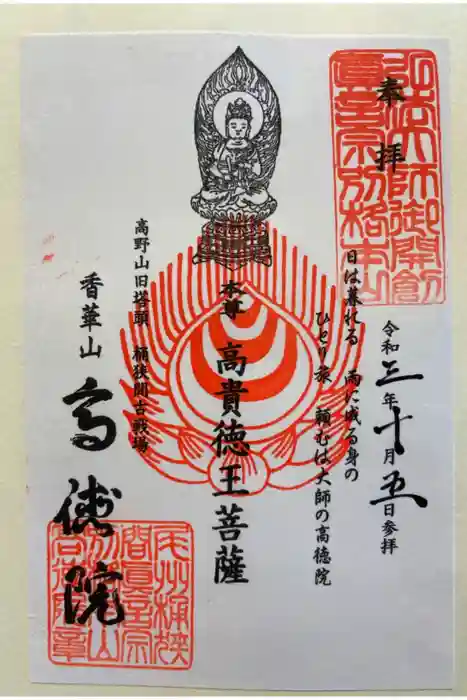 奉拝
弘法大師御開創
真言宗別格本山
令和三年十月五日参拝
日は暮れる 雨に威る身の
ひとり旅 頼むは大師の高徳院
本尊 高貴徳王菩薩
高野山旧塔頭 桶狭間古戦場
香華山 高徳院